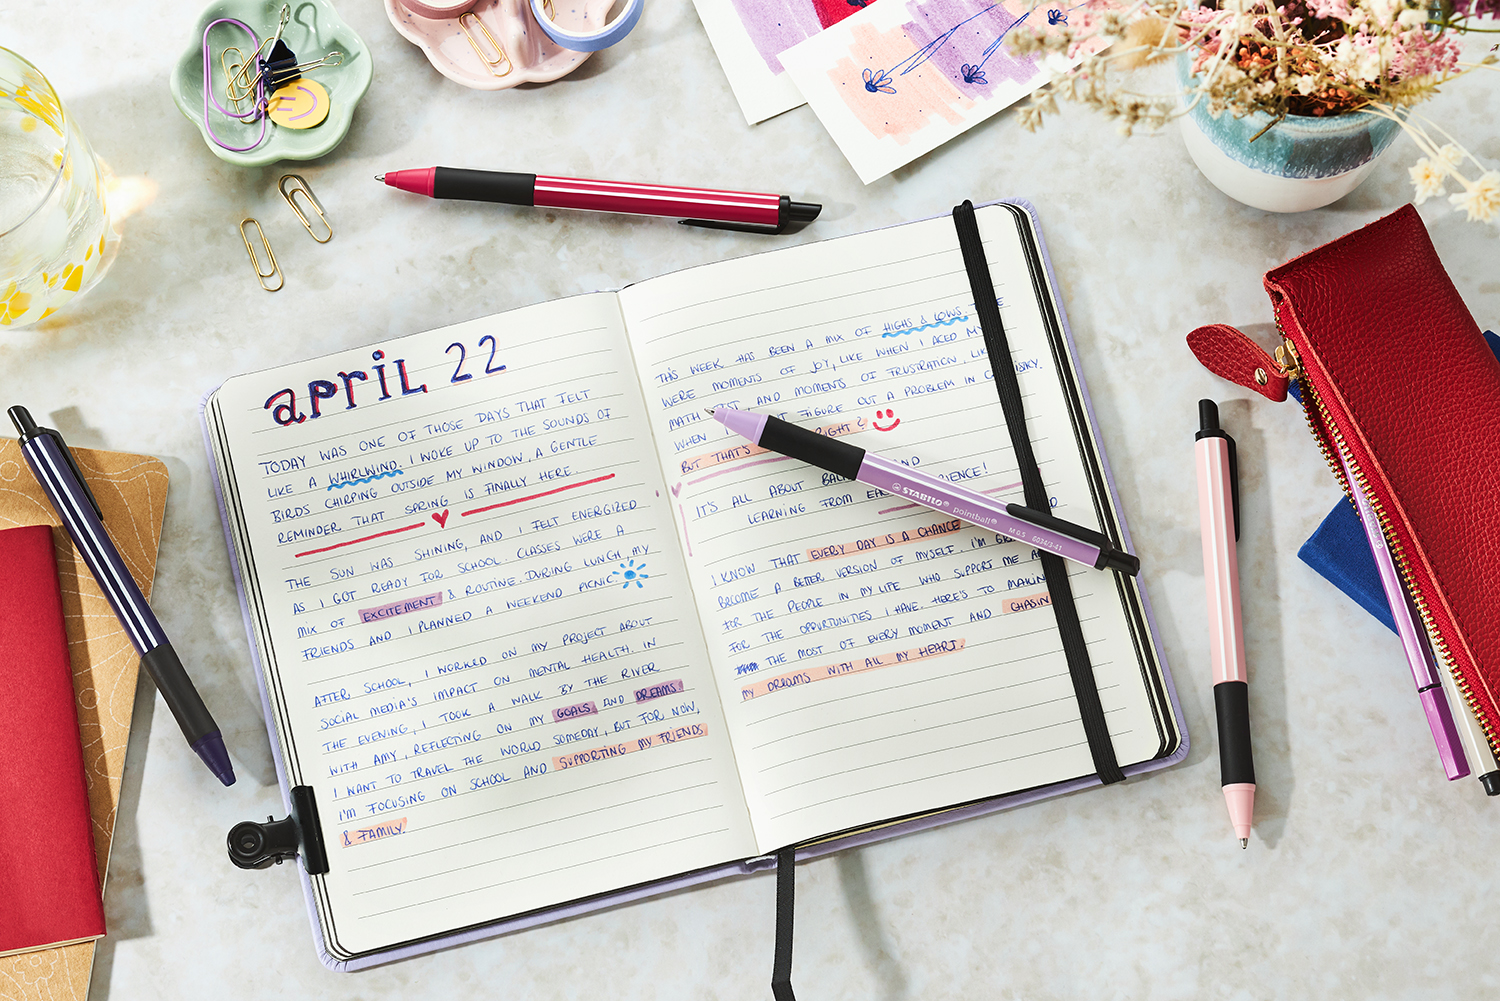 april 22
TODAY WAS ONE OF THOSE DAYS THAT FELT
LIKE A WHIRLWIND. I WOKE UP TO THE SOUNDS OF
BIRDS CHIRPING OUTSIDE MY WINDOW, A GENTLE
REMINDER THAT SPRING IS FINALLY HERE.
THE SUN WAS SHINING, AND I FELT ENERGIZED
AS I GOT READY FOR SCHOOL. CLASSES WERE A
MIX OF EXCITEMENT & ROUTINE. DURING LUNCH, MY
FRIENDS AND I PLANNED A WEEKEND PICNIC.
AFTER SCHOOL, I WORKED ON MY PROJECT ABOUT
SOCIAL MEDIA'S IMPACT ON MENTAL HEALTH. IN
THE EVENING, I TOOK A WALK BY THE RIVER
WITH AMY, REFLECTING ON MY GOALS AND DREAMS.
I WANT TO TRAVEL THE WORLD SOMEDAY, BUT FOR NOW,
I'M FOCUSING ON SCHOOL AND SUPPORTING MY FRIENDS
& FAMILY.
THIS WEEK HAS BEEN A MIX OF HIGHS & LOWS.
WERE MOMENTS OF JOY, LIKE WHEN I ACED MY
MATH TEST, AND MOMENTS OF FRUSTRATION, LIKE
WHEN I FIGURE OUT A PROBLEM IN
BUT THAT'S RIGHT?
IT'S ALL ABOUT AND
LEARNING FROM
I KNOW THAT EVERY DAY IS A CHANCE
BECOME A BETTER VERSION OF MYSELF. I'M
FOR THE PEOPLE IN MY LIFE WHO SUPPORT ME
FOR THE OPPURTUNITIES I HAVE. HERE'S TO MAKIN
THE MOST OF EVERY MOMENT AND CHASIN
MY DREAMS WITH ALL MY HEART.
STABILO® pointball® M 0.5 6030/3-41